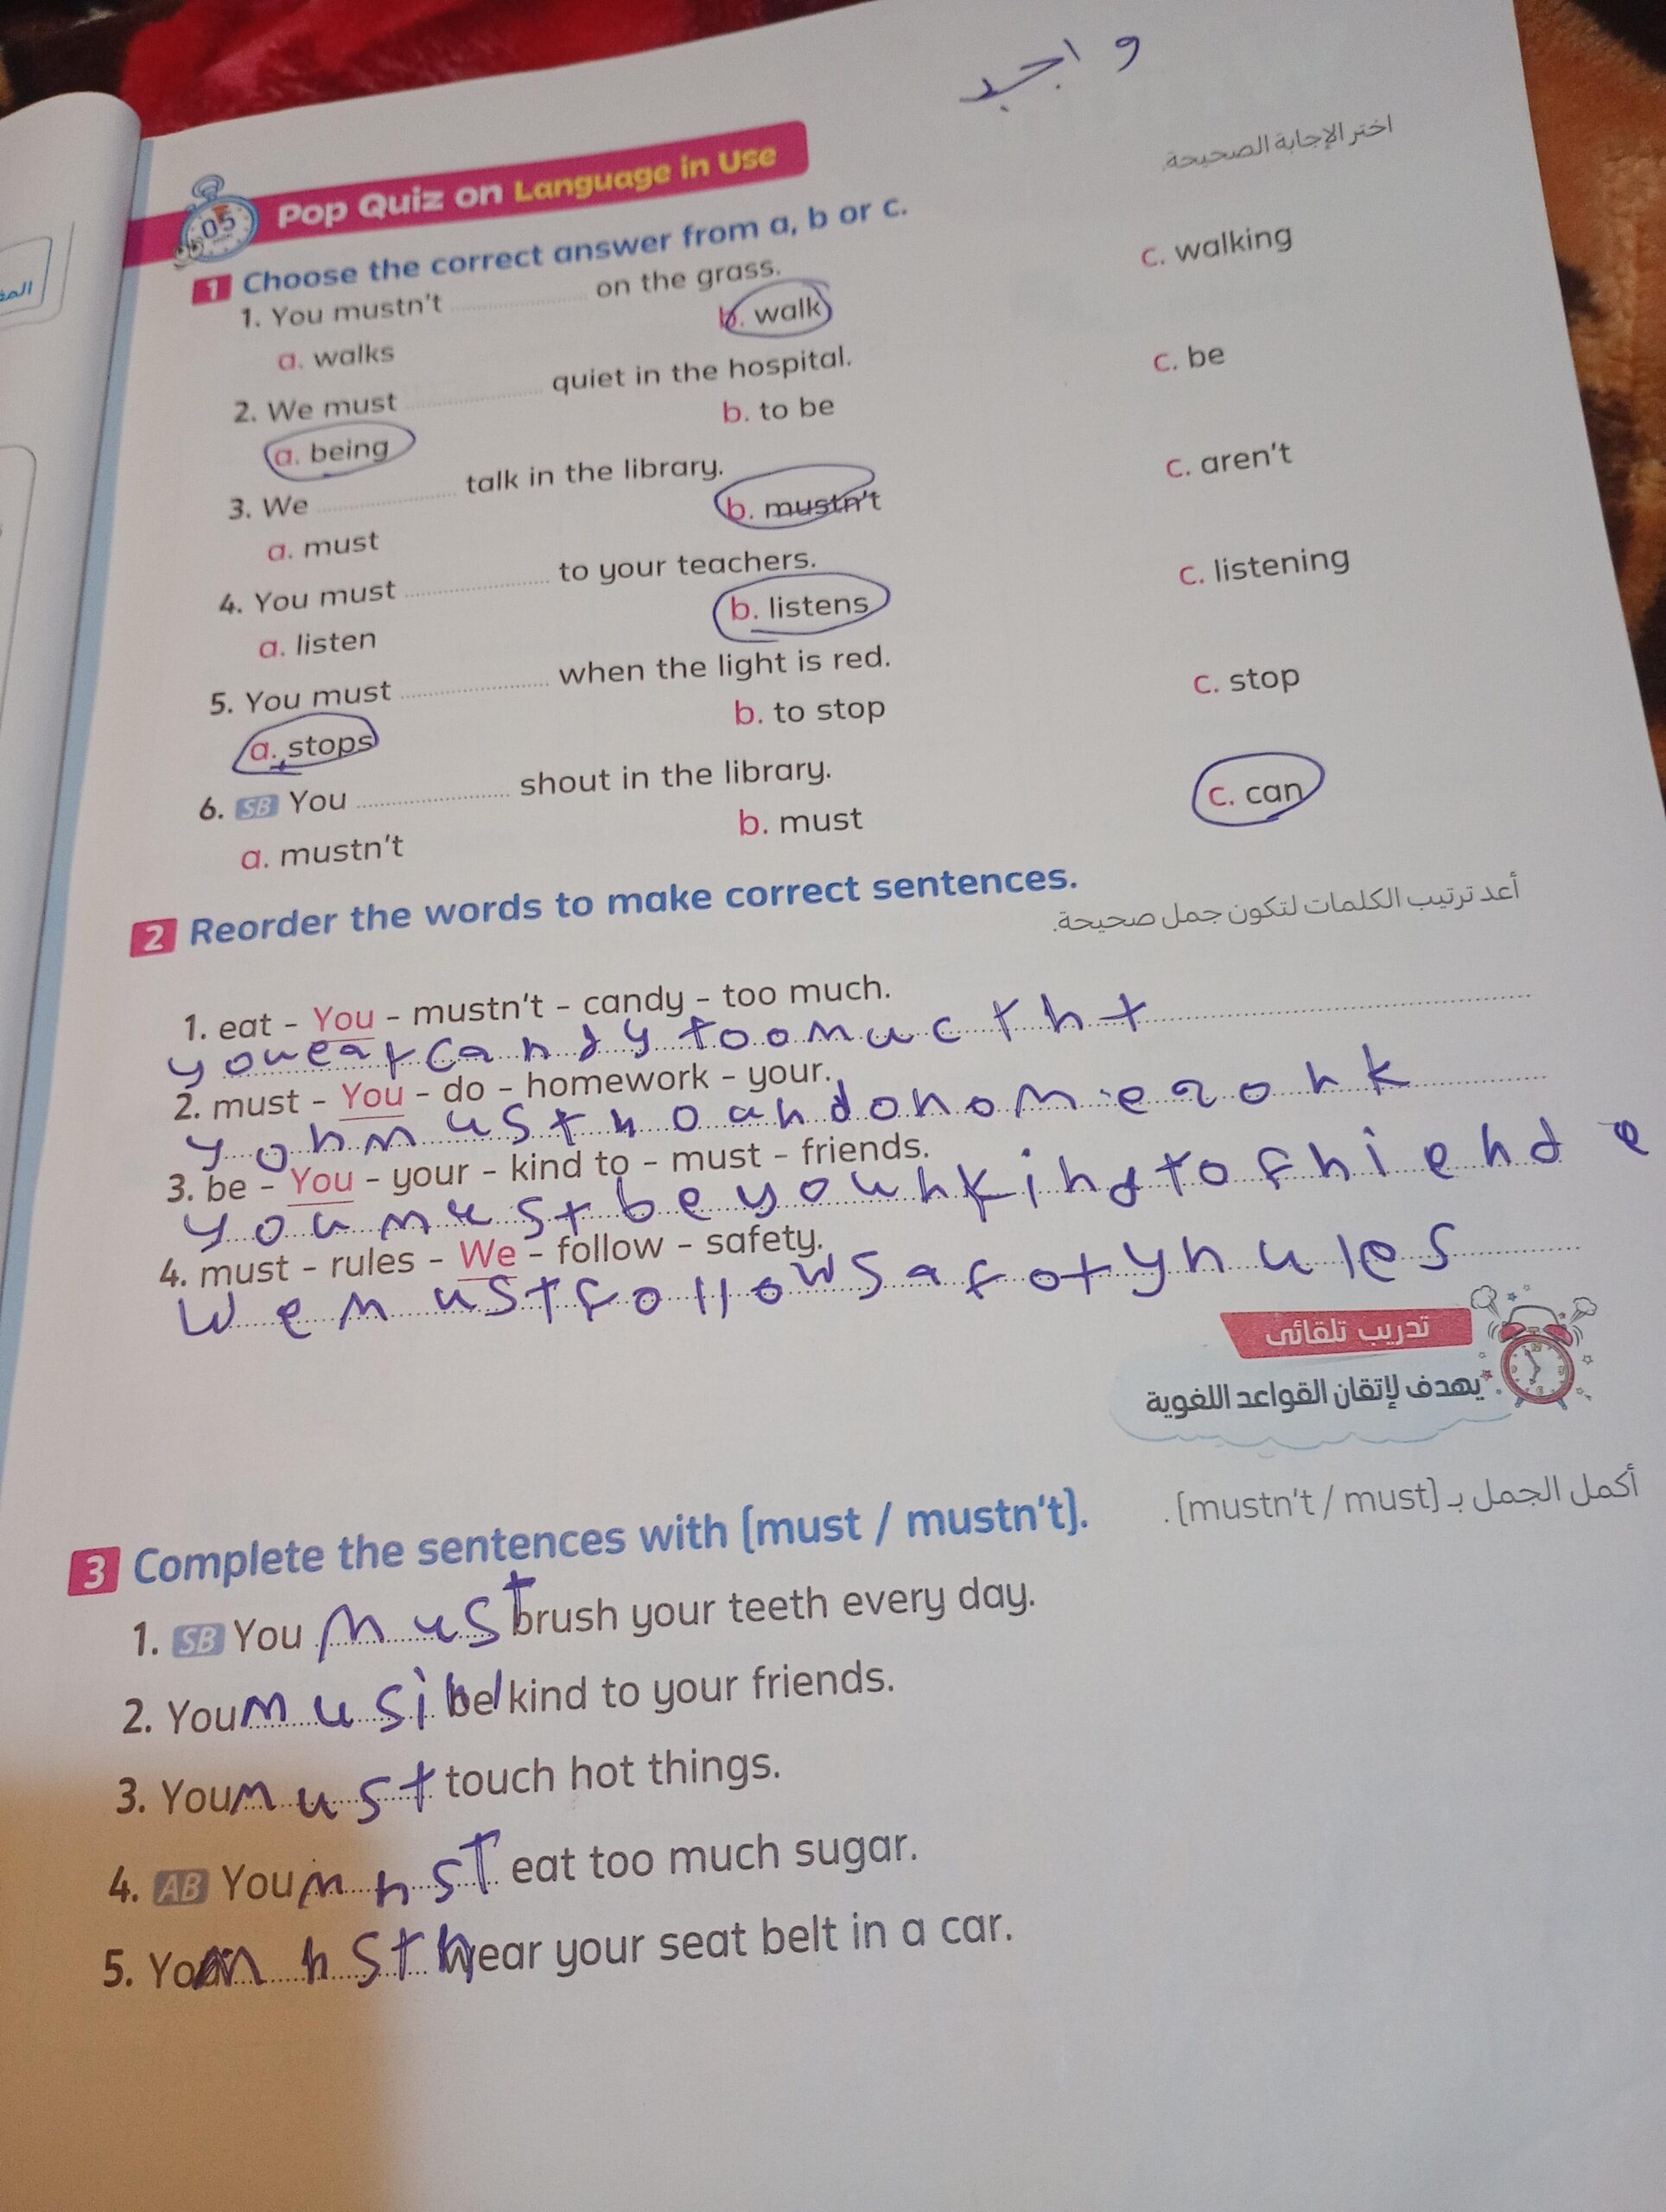 واجب
Pop Quiz on Language in Use
05
1 Choose the correct answer from a, b or c.
اختر الإجابة الصحيحة.
1. You mustn't ............ on the grass.
a. walks b. walk c. walking
2. We must ............ quiet in the hospital.
a. being b. to be c. be
3. We ............ talk in the library.
a. must b. mustn't c. aren't
4. You must ............ to your teachers.
a. listen b. listens c. listening
5. You must ............ when the light is red.
a. stops b. to stop c. stop
6. SB You ............ shout in the library.
a. mustn't b. must c. can
2 Reorder the words to make correct sentences.
أعد ترتيب الكلمات لتكون جمل صحيحة.
1. eat - You - mustn't - candy - too much.
you eat candy toomuctht
2. must - You - do - homework - your.
3. be - You - your - kind to - must - friends.
you must be youh kind to fhiende
4. must - rules - We - follow - safety.
We must follow safoty hules
تدريب تلقائى
يهدف لإتقان القواعد اللغوية
3 Complete the sentences with (must / mustn't).
أكمل الجمل بـ (mustn't / must).
1. SB You must brush your teeth every day.
2. You musi be kind to your friends.
3. You must touch hot things.
4. AB You mhst eat too much sugar.
5. You mhsth wear your seat belt in a car.